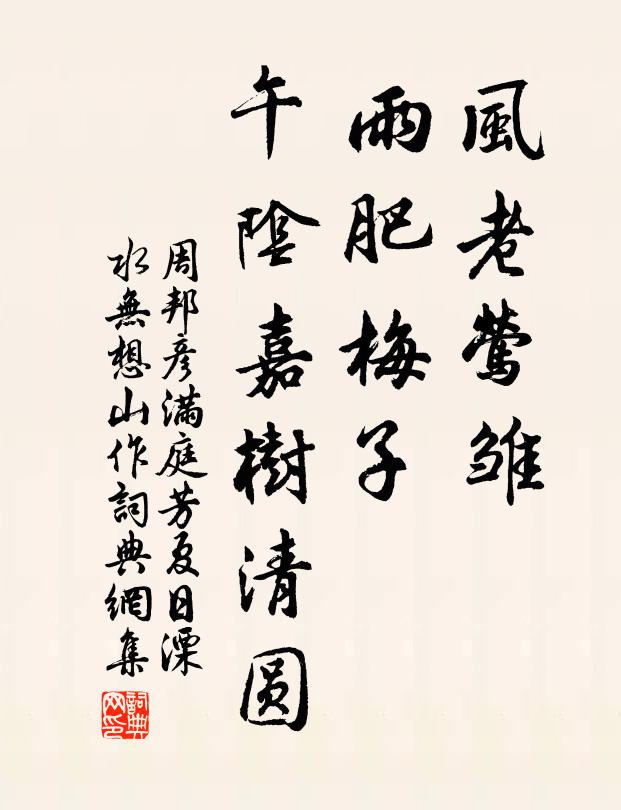 風老鶯雛
雨肥梅子
午陰嘉樹清圆
周邦彦滿庭芳夏日溧
水無想山作詞典網集
詞典
网印